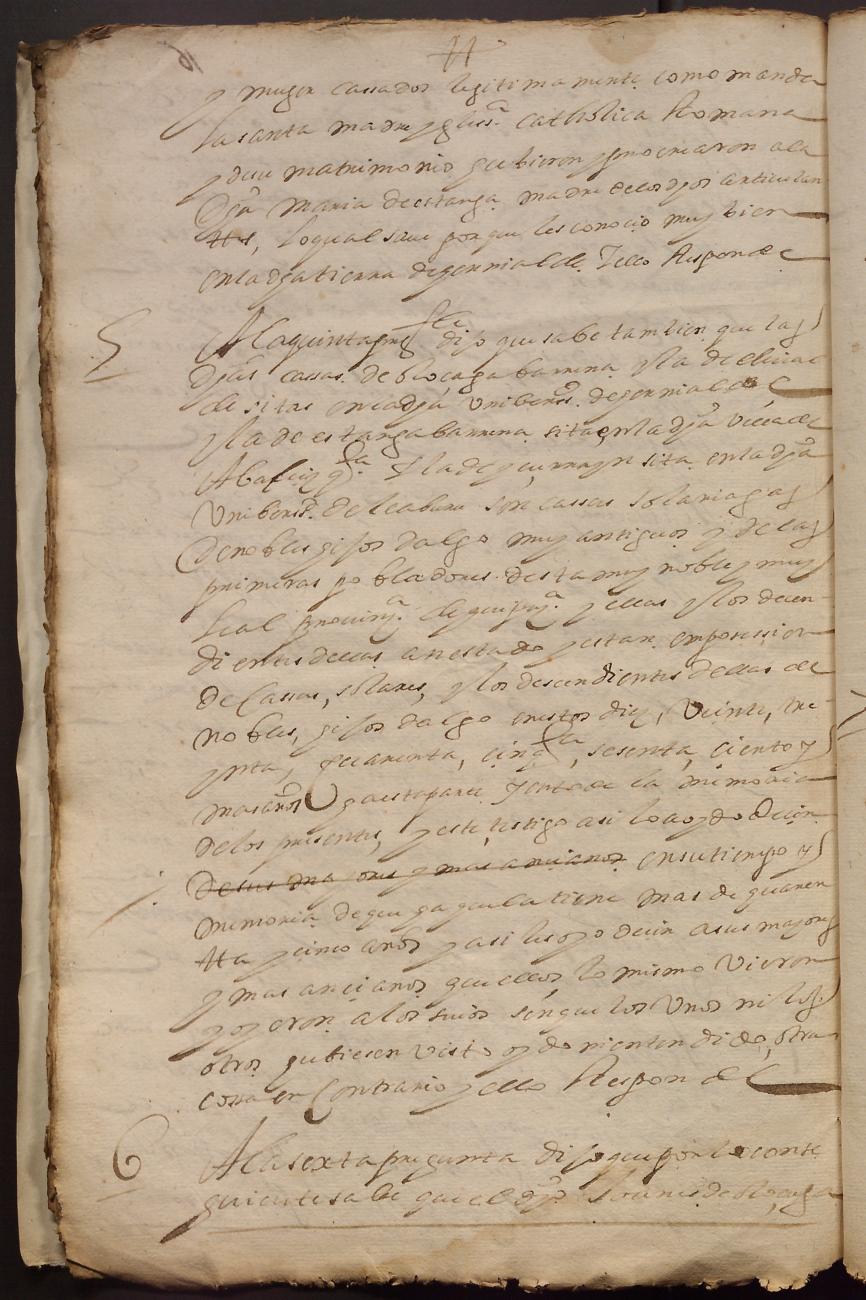 y muger cassados legitimamente como manda
la santa madre yglessª catholica Romana
y de su matrimonio hubieron y procrearon a la
dha maria de estanga madre de los dhos articulan
ttes, lo qual save por que les conocio muy bien
en la dha tierra de y ello Responde
5 A la quinta pregta dijo que sabe tambien que las
dhas cassas de barrena y la de
de sitas en la dha Unibersd de
y la de estanga barrena sita en la dha Villa de
y la de sita en la dha
Unibersd de leaburu son cassas solariagas
de nobles hijos dalgo muy antiguos y de las
primeras pobladores desta muy noble y muy
leal provinçª de guipuzª y ellas y los decen
dientes dellas an estado y estan en possession
de Cassas, solares, y los descendientes dellas de
nobles, hijos dalgo en estos diez, Veinte, tre
ynta, quarenta, cinqta, sesenta, ciento y
mas años a esta parte y tanto de la memoria
de los presentes, y este testigo asi lo a oydo Decir
De sus mayores y mas ancianos en su tiempo y
memoria de que ha que la tiene mas de quaren
tta y cinco años y asi lo oyo decir a sus mayores
y mas ançianos que ellos lo mismo Vieron
y oyeron a los suios sin que los Unos ni los
otros hubiesen Visto oydo ni entendido, otra
cossa en Contrario y ello Responde
6 A la sexta pregunta dijo que por lo conte
guiente sabe que el dho Joanes de